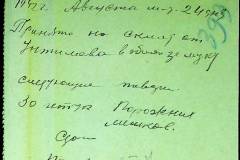 Августа м-ца 24 дня
Принято на склад от
в обмен за муку
следующие товары
50 штук Порожних
мешков.
Сдал